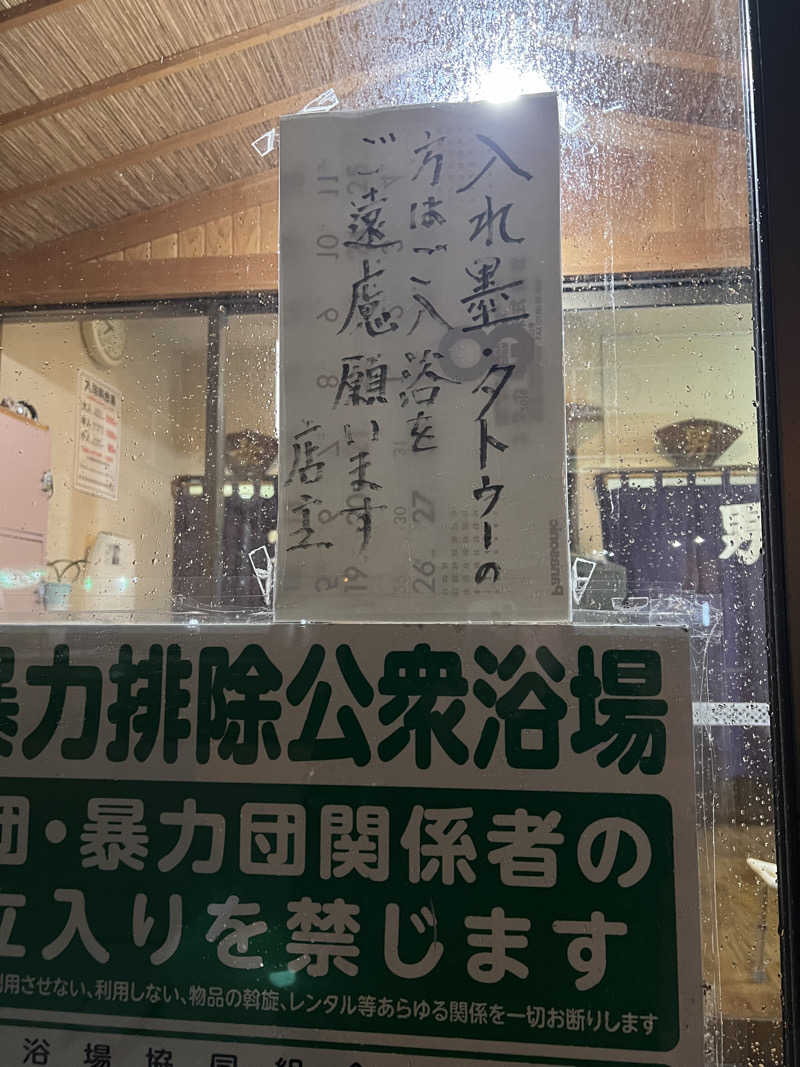 入れ墨・タトゥーの
方はご入浴を
ご遠慮願います
店主
Panasonic
男
暴力排除公衆浴場
団・暴力団関係者の
立入りを禁じます
用させない、利用しない、物品の斡旋、レンタル等あらゆる関係を一切お断りします
浴場協同組